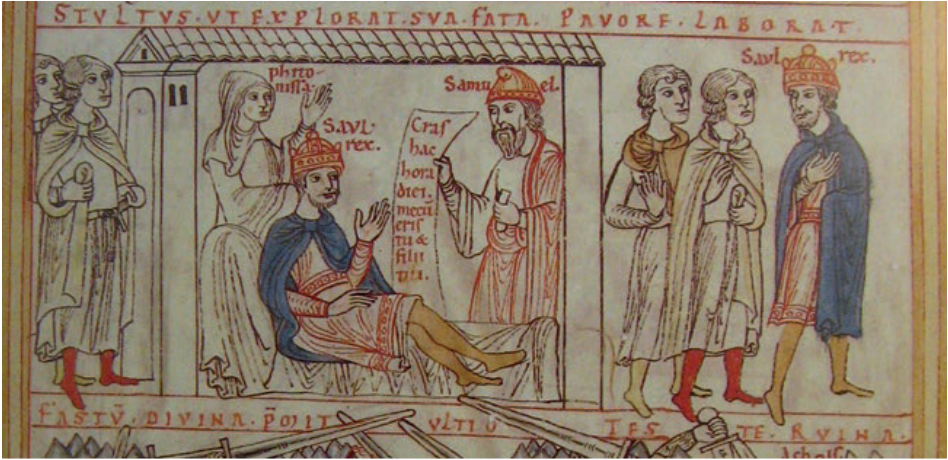 STVLTVS . VT EXPLORAT . SVA . FATA . PAVORE . LABORAT .
phito
nissa
SAVL
rex.
Samu el.
Cras
hac
hora
diei.
mecū
eris
tu &
filii
tui.
SAVL rex.
FASTŪ . DIVINA . P̄OIT VLTIO TES TE . RVINA .